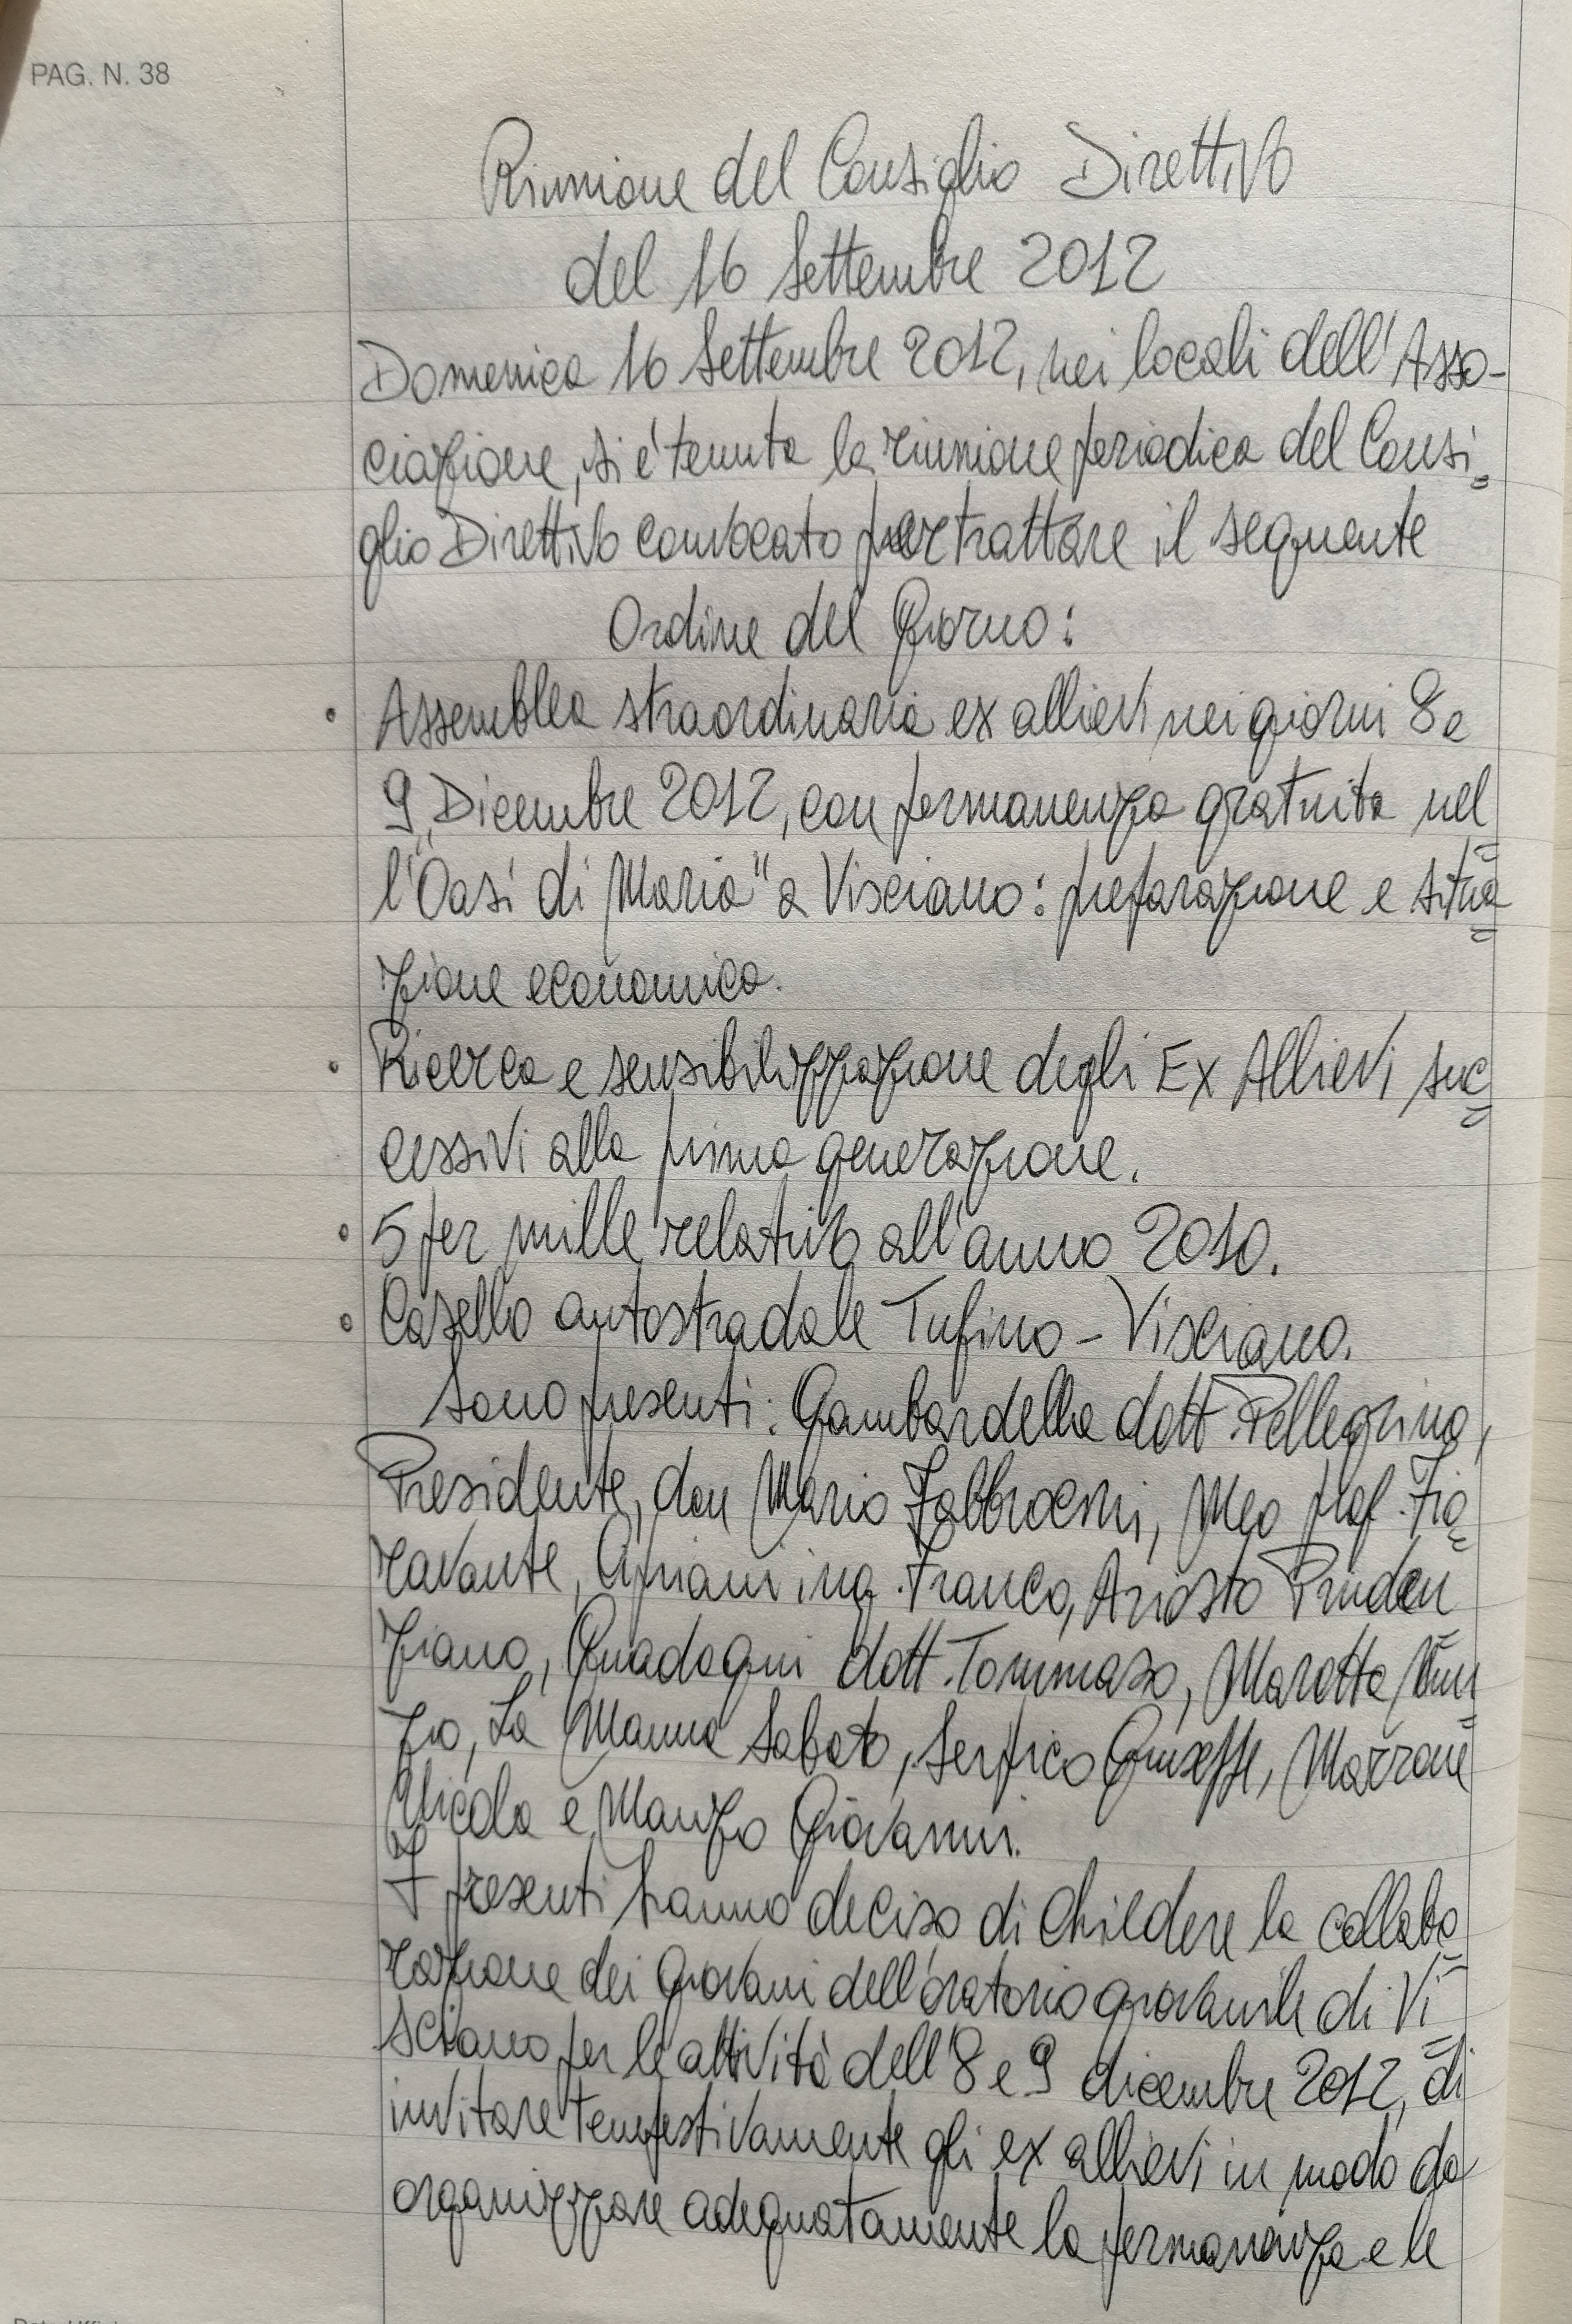 PAG. N. 38
Riunione del Consiglio Direttivo
del 16 Settembre 2012
Domenica 16 Settembre 2012, nei locali dell'Asso-
ciazione, si è tenuta la riunione periodica del Consi=
glio Direttivo convocato per trattare il seguente
Ordine del Giorno:
• Assemblea straordinaria ex allievi nei giorni 8 e
9 Dicembre 2012, con permanenza gratuita nel=
l'"Oasi di Maria" a Visciano: preparazione e situa=
zione economica.
• Ricerca e sensibilizzazione degli Ex Allievi suc=
cessivi alla prima generazione.
• 5 per mille relativo all'anno 2010.
• Casello autostradale Tufino - Visciano.
Sono presenti: Gambardella dott. Pellegrino,
Presidente, don Mario Fabbrocini, Meo prof. Fio=
ravante, Cipriani ing. Franco, Ariosto Pruden=
ziano, Guadagni dott. Tommaso, Marotta Nun=
zio, La Manna Sabato, Serpico Giuseppe, Marrone
Nicola e Manzo Giovanni.
I presenti hanno deciso di chiedere la collabo=
razione dei giovani dell'oratorio giovanile di Vi=
sciano per le attività dell'8 e 9 dicembre 2012, di
invitare tempestivamente gli ex allievi in modo da
organizzare adeguatamente la permanenza e le